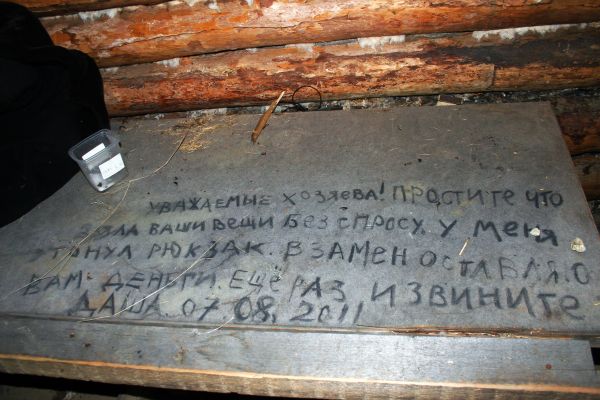 УВАЖАЕМЫЕ ХОЗЯЕВА! ПРОСТИТЕ ЧТО
ВЗЯЛА ВАШИ ВЕЩИ БЕЗ СПРОСУ. У МЕНЯ
УТОНУЛ РЮКЗАК. ВЗАМЕН ОСТАВЛЯЮ
ВАМ ДЕНЬГИ. ЕЩЁ РАЗ ИЗВИНИТЕ
ДАША. 07.08.2011